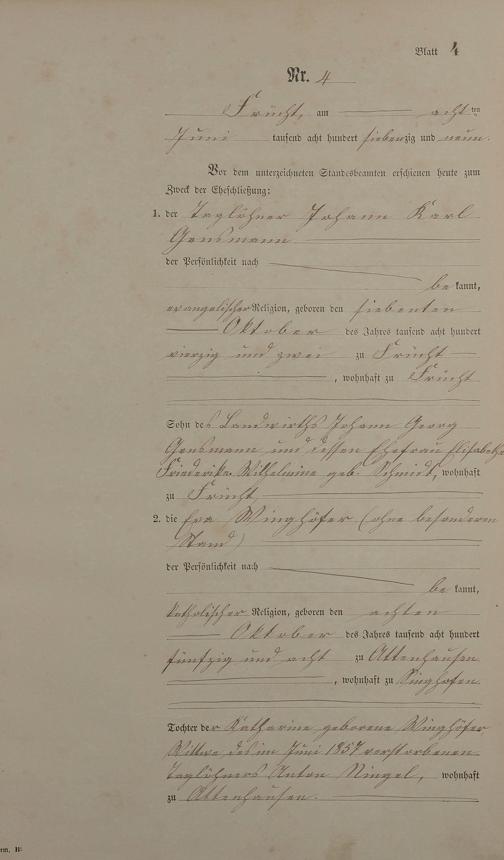 Blatt 4
Nr. 4
Frücht, am achtten
Juni tausend acht hundert siebenzig und neun.
Vor dem unterzeichneten Standesbeamten erschienen heute zum
Zweck der Eheschließung:
1. der Taglöhner Johann Karl
Gensmann
der Persönlichkeit nach
bekannt,
evangelischer Religion, geboren den siebenten
Oktober des Jahres tausend acht hundert
vierzig und zwei zu Frücht
, wohnhaft zu Frücht
Sohn des Landwirths Johann Georg
Gensmann und dessen Ehefrau Elisabetha
Friederike Wilhelmine geb. Schmidt, wohnhaft
zu Frücht
2. die Eva Winghöfer (ohne besonderen
Stand)
der Persönlichkeit nach
bekannt,
katholischer Religion, geboren den achten
Oktober des Jahres tausend acht hundert
fünfzig und acht zu Attenhausen
, wohnhaft zu Singhofen
Tochter der Katharine geborene Winghöfer
Wittwe des im Juni 1857 verstorbenen
Taglöhners Anton Ningel, wohnhaft
zu Attenhausen.